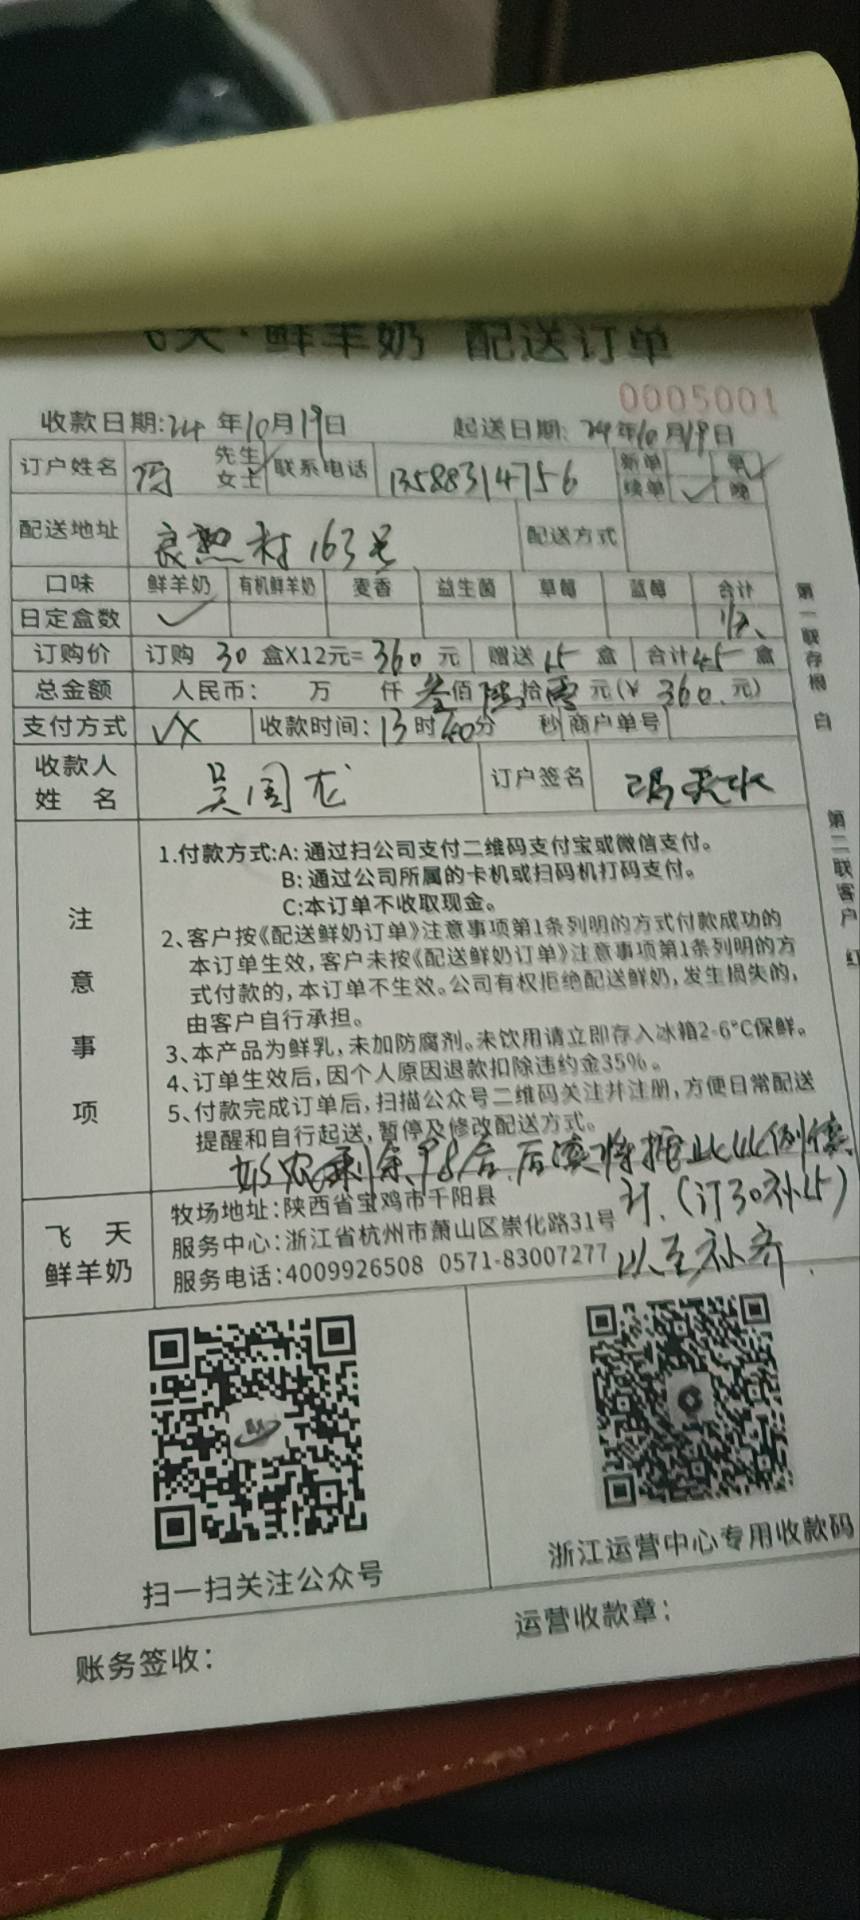 飞天·鲜羊奶 配送订单
0005001
收款日期:24年10月19日 起送日期:24年10月19日
订户姓名 冯 先生 女士 联系电话 13588314756 新单 早 续单 晚
配送地址 良熟村163号 配送方式
口味 鲜羊奶 有机鲜羊奶 麦香 益生菌 草莓 蓝莓 合计
日定盒数
订购价 订购 30 盒X12元=360元 赠送 15 盒 合计45盒
总金额 人民币: 万 仟 叁佰陆拾零元(¥ 360.元)
支付方式 VX 收款时间:13时40分 秒 商户单号
收款人
姓 名 吴周龙 订户签名 冯天水
注意事项
1.付款方式:A: 通过扫公司支付二维码支付宝或微信支付。
B: 通过公司所属的卡机或扫码机打码支付。
C:本订单不收取现金。
2、客户按《配送鲜奶订单》注意事项第1条列明的方式付款成功的
本订单生效,客户未按《配送鲜奶订单》注意事项第1条列明的方
式付款的,本订单不生效。公司有权拒绝配送鲜奶,发生损失的,
由客户自行承担。
3、本产品为鲜乳,未加防腐剂。未饮用请立即存入冰箱2-6°C保鲜。
4、订单生效后,因个人原因退款扣除违约金35%。
5、付款完成订单后,扫描公众号二维码关注并注册,方便日常配送
提醒和自行起送,暂停及修改配送方式。
剩余98合.后续将按此比例续
订.(订30补15)
以至补齐.
飞 天
鲜羊奶
牧场地址:陕西省宝鸡市千阳县
服务中心:浙江省杭州市萧山区崇化路31号
服务电话:4009926508 0571-83007277
扫一扫关注公众号
浙江运营中心专用收款码
账务签收:
运营收款章:
第一联存根 白
第二联客户 红